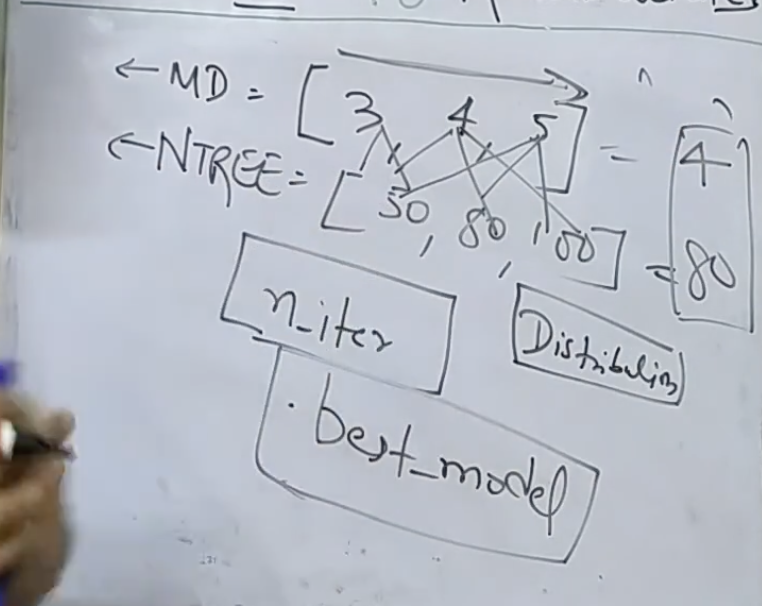 ← MD = [ 3 4 5 ] = 4
← NTREE = [ 50, 80, 100 ] = 80
n_iter
Distribution
.best_model